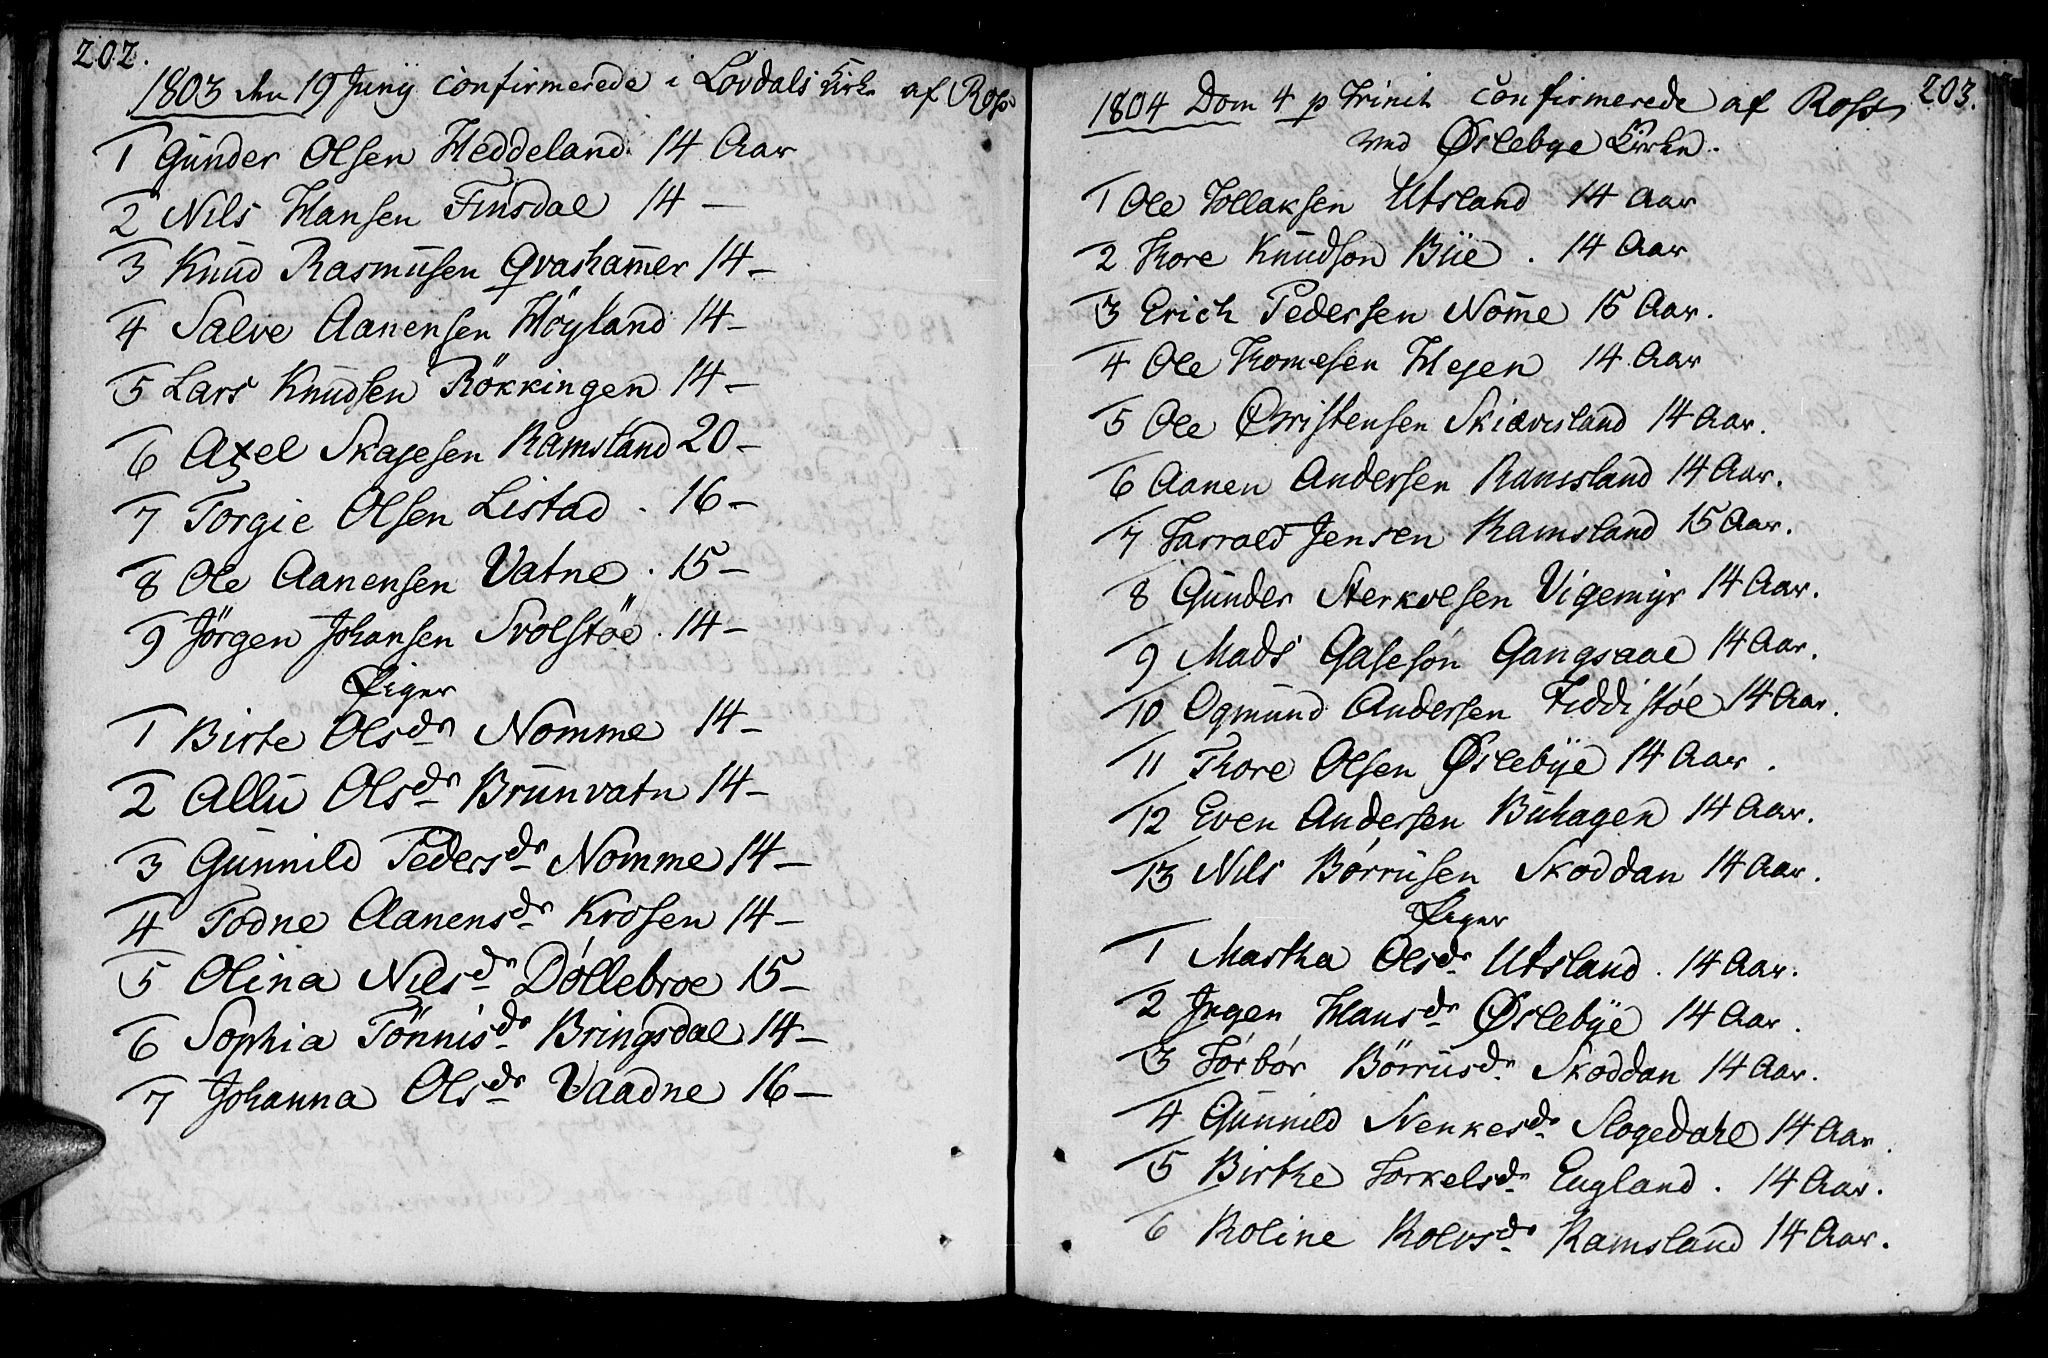 202.
1803 den 19 Junÿ confirmerede i Lovdals Kirke af Ross
1 Gunder Olsen Heddeland 14 Aar
2 Nils Hansen Finsdal 14 —
3 Knud Rasmusen Qvasham̄er 14 —
4 Salve Aanensen Höyland 14 —
5 Lars Knudsen Rökkingen 14 —
6 Axel Skajesen Ramsland 20 —
7 Torgie Olsen Listad . 16 —
8 Ole Aanensen Vatne . 15 —
9 Jörgen Johansen Svolstöe . 14 —
Piger
1 Birte Olsdr Nomme 14 —
2 Allu Olsdr Brunvatn 14 —
3 Gunnild Pedersdr Nomme 14 —
4 Todne Aanensdr Krosen 14 —
5 Olina Nilsdr Døllebroe 15 —
6 Sophia Tönnisdr Bringsdal 14 —
7 Johanna Olsdr Vaadne 16 —
203.
1804 Dom 4 p Trinit confirmerede af Ross
ved Øslebye Kirke.
1 Ole Tollaksen Utsland 14 Aar
2 Thore Knudson Biie . 14 Aar
3 Erich Pedersen Nom̄e 15 Aar.
4 Ole Thomesen Hejen 14 Aar
5 Ole Christensen Skiævisland 14 Aar.
6 Aanen Andersen Ramsland 14 Aar.
7 Tarrald Jensen Ramsland 15 Aar.
8 Gunder Sterkolsen Vigemyr 14 Aar.
9 Mads Gasesøn Gangsaae 14 Aar.
10 Ogmund Andersen Fiddistøe 14 Aar.
11 Thore Olsen Øslebÿe 14 Aar .
12 Even Andersen Buhagen 14 Aar.
13 Nils Børrusen Skoddan 14 Aar.
Piger
1 Martha Olsdr Utsland . 14 Aar.
2 Ingen Hansdr Øslebÿe 14 Aar .
3 Torbør Börrusdr Skoddan 14 Aar.
4 Gunnild Nenkesdr Slogedahl 14 Aar.
5 Birthe Torkelsdr Eugland . 14 Aar.
6 Roline Rolvsdr Ramsland 14 Aar.